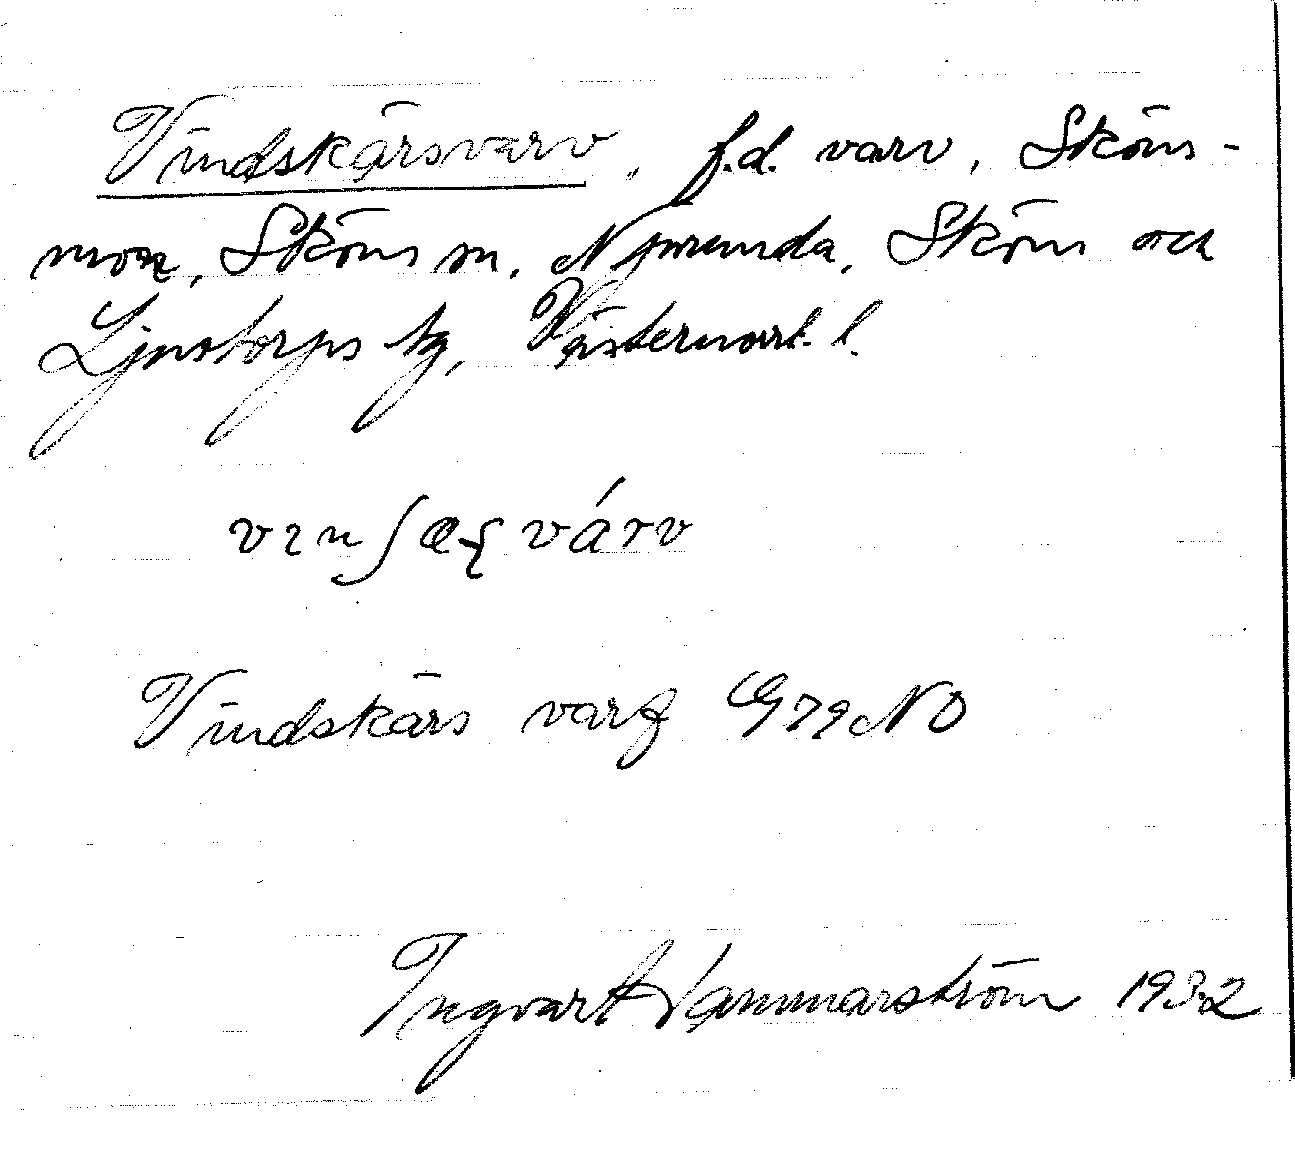 Vindskärsvarv, f.d. varv, Sköns-
mon, Sköns sn, Njurunda, Sköns och
Ljustorps tg, Västernorrl. l.
Vindskärs varf G79NO
Ingvart Hammarström 1932